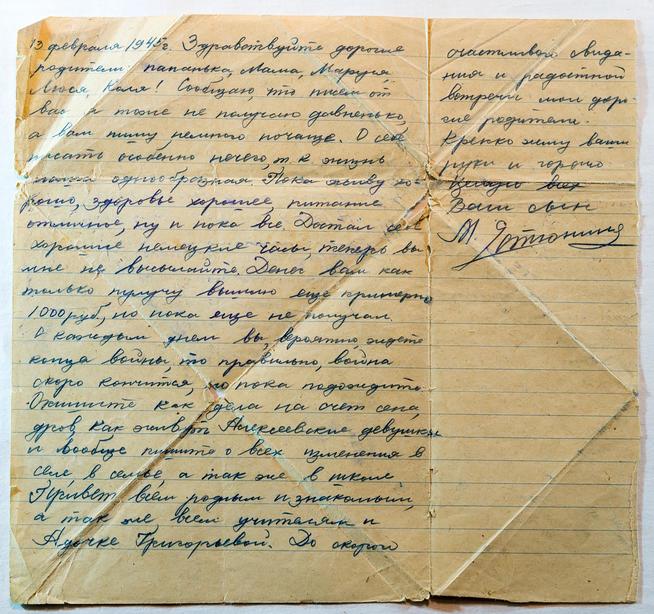 13 февраля 1945г. Здравствуйте дорогие
родители: папанька, Мама, Маруся,
Люся, Коля! Сообщаю что писем от
вас я тоже не получаю давненько,
а вам пишу немного почаще. О себе
писать особенно нечего, т.к жизнь
наша однообразная. Пока живу хо-
рошо, здоровье хорошее питание
отличное, ну и пока все. Достал себе
хорошие немецкие часы, теперь вы
мне не высылайте. Денег вам как
только получу вышлю еще примерно
1000 руб, но пока еще не получал.
С каждым днем вы, вероятно, ждете
конца войны, то правильно, война
скоро кончится, но пока подождите.
Опишите как дела на счет сена,
дров, как живут Алексеевские девушки
и вообще пишите о всех изменения в
селе, в семье, а так же в школе
Привет всем родным и знакомым,
а так же, всем учителям и
Адочке Григорьевой. До скорой
счастливой свида-
ния и радостной
встречи мои доро-
гие родители.
Крепко жму ваши
руки и горячо
целую всех
Ваш сын
М.